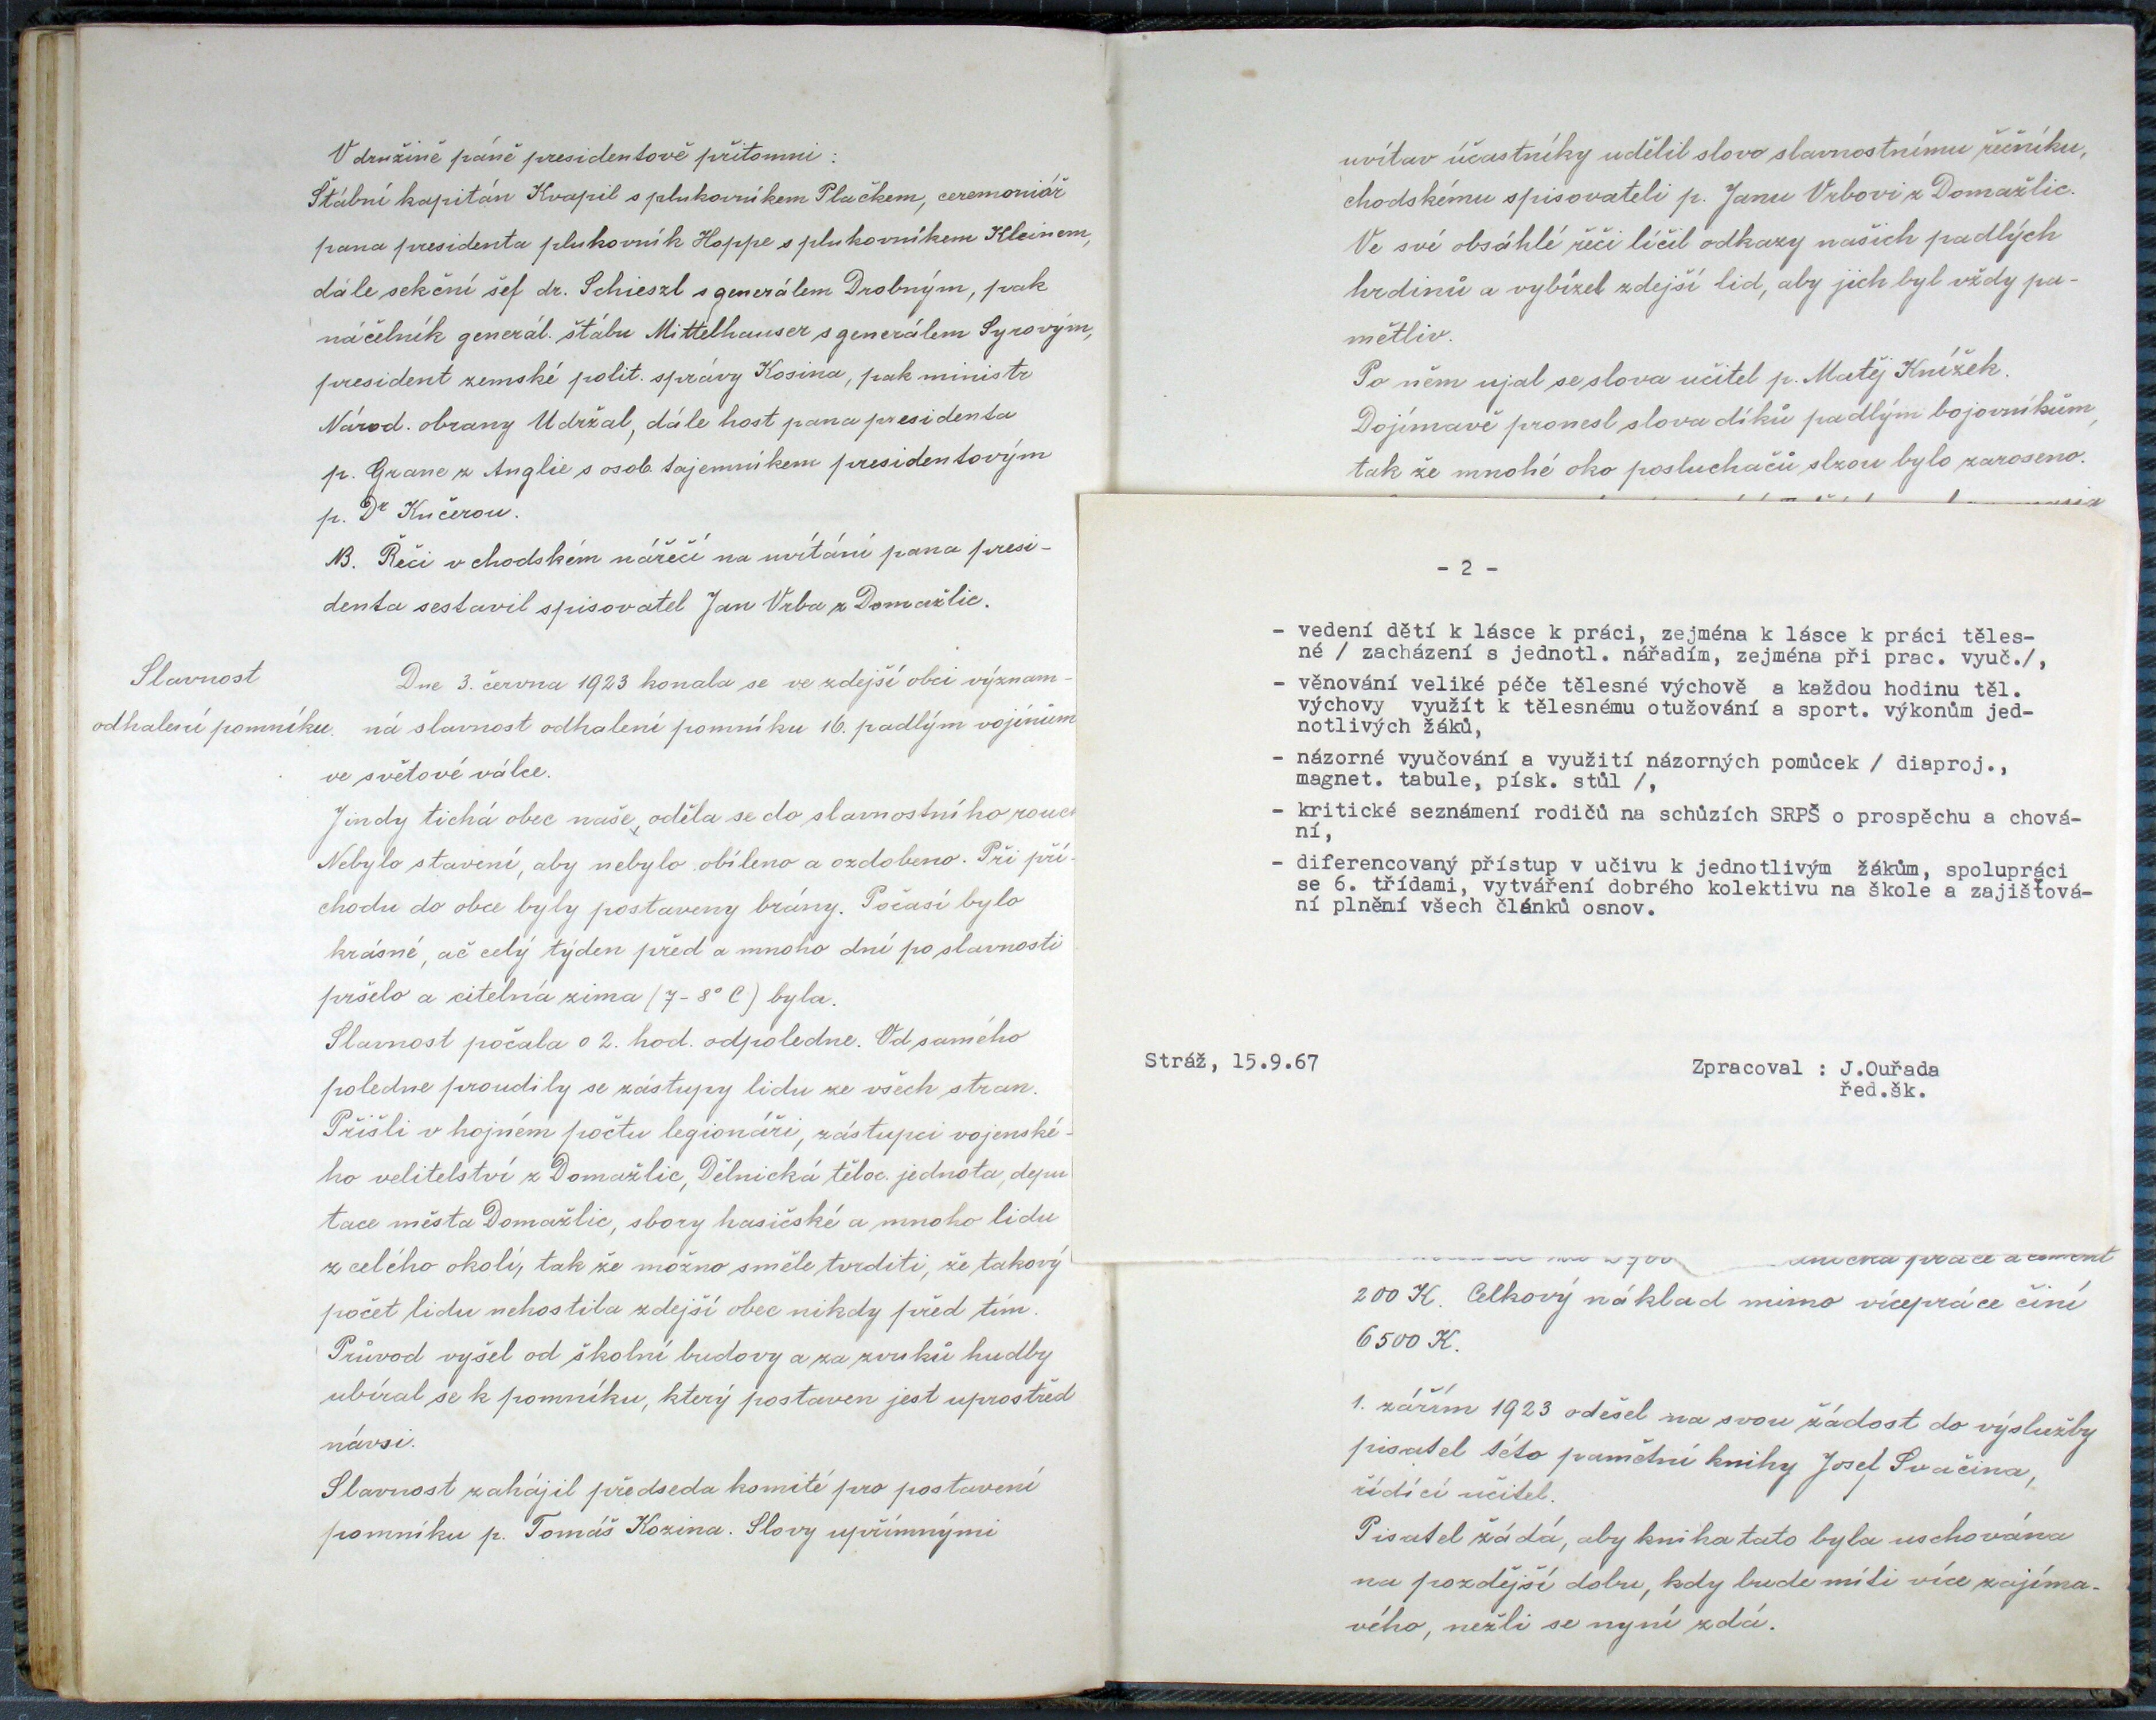 V družině páně presidentově přítomni:
Štábní kapitán Kvapil s plukovníkem Plačkem, ceremoniář
pana presidenta plukovník Hoppe s plukovníkem Kleinem,
dále sekční šéf dr. Schieszl s generálem Drobným, pak
náčelník generál. štábu Mittelhauser s generálem Syrovým,
president zemské polit. správy Kosina, pak ministr
Národ. obrany Udržal, dále host pana presidenta
p. Grane z Anglie s osob. tajemníkem presidentovým
p. Dr Kučerou.
NB. Řeči v chodském nářečí na uvítání pana presi-
denta sestavil spisovatel Jan Vrba z Domažlic.
Slavnost
odhalení pomníku.
Dne 3. června 1923 konala se ve zdejší obci význam-
ná slavnost odhalení pomníku 16. padlým vojínům
ve světové válce.
Jindy tichá obec naše, oděla se do slavnostního rouch
Nebylo stavení, aby nebylo obíleno a ozdobeno. Při pří-
chodu do obce byly postaveny brány. Počasí bylo
krásné, ač celý týden před a mnoho dní po slavnosti
pršelo a citelná zima (7-8° C) byla.
Slavnost počala o 2. hod. odpoledne. Od samého
poledne proudily se zástupy lidu ze všech stran.
Přišli v hojném počtu legionáři, zástupci vojenské-
ho velitelství z Domažlic, Dělnická těloc. jednota, depu
tace města Domažlic, sbory hasičské a mnoho lidu
z celého okolí, tak že možno směle tvrditi, že takový
počet lidu nehostila zdejší obec nikdy před tím.
Průvod vyšel od školní budovy a za zvuků hudby
ubíral se k pomníku, který postaven jest uprostřed
návsi.
Slavnost zahájil předseda komité pro postavení
pomníku p. Tomáš Kozina. Slovy upřímnými
uvítav účastníky udělil slovo slavnostnímu řečníku,
chodskému spisovateli p. Janu Vrbovi z Domažlic.
Ve své obsáhlé řeči líčil odkazy našich padlých
hrdinů a vybízel zdejší lid, aby jich byl vždy pa-
mětliv.
Po něm ujal se slova učitel p. Matěj Knížek.
Dojímavě pronesl slova díků padlým bojovníkům,
tak že mnohé oko posluchačů slzou bylo zaroseno.
- 2 -
- vedení dětí k lásce k práci, zejména k lásce k práci těles-
né / zacházení s jednotl. nářadím, zejména při prac. vyuč./,
- věnování veliké péče tělesné výchově a každou hodinu těl.
výchovy využít k tělesnému otužování a sport. výkonům jed-
notlivých žáků,
- názorné vyučování a využití názorných pomůcek / diaproj.,
magnet. tabule, písk. stůl /,
- kritické seznámení rodičů na schůzích SRPŠ o prospěchu a chová-
ní,
- diferencovaný přístup v učivu k jednotlivým žákům, spolupráci
se 6. třídami, vytváření dobrého kolektivu na škole a zajišťová-
ní plnění všech článků osnov.
Stráž, 15.9.67
Zpracoval : J.Ouřada
řed.šk.
práce a cement
200 K. Celkový náklad mimo vícepráce činí
6500 K.
1. zářím 1923 odešel na svou žádost do výslužby
pisatel této pamětní knihy Josef Svačina,
řídící učitel.
Pisatel žádá, aby kniha tato byla uschována
na pozdější dobu, kdy bude míti více zajíma-
vého, nežli se nyní zdá.